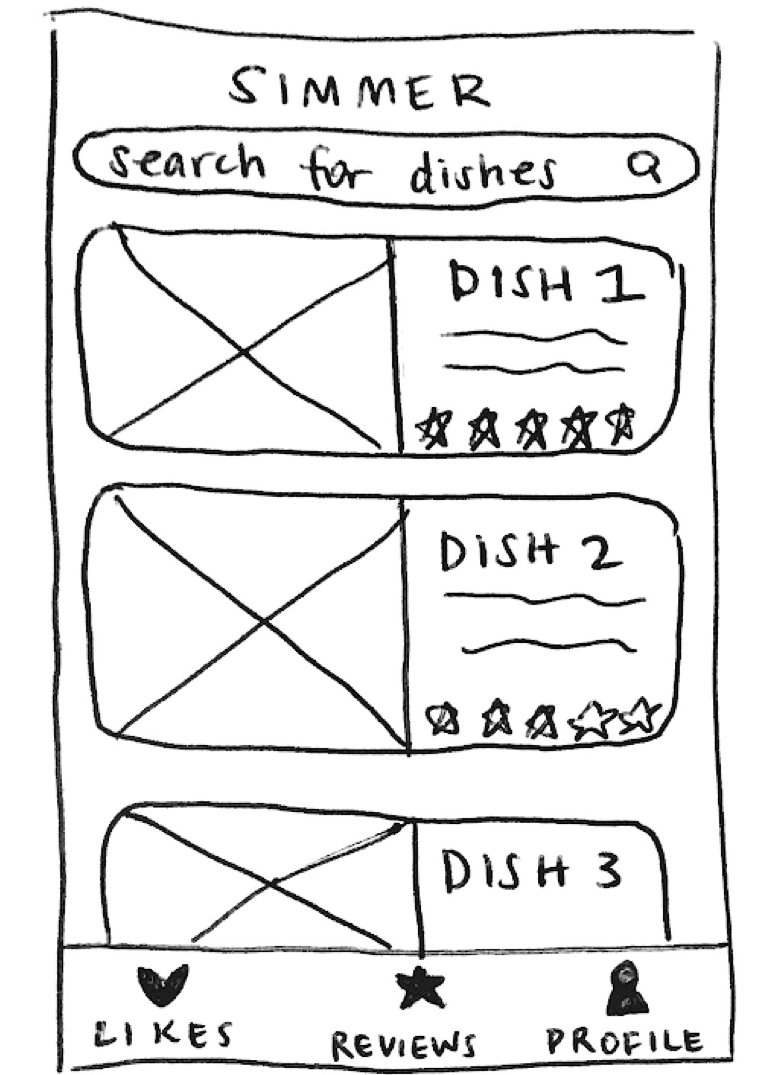 SIMMER
search for dishes
DISH 1
DISH 2
DISH 3
LIKES REVIEWS PROFILE